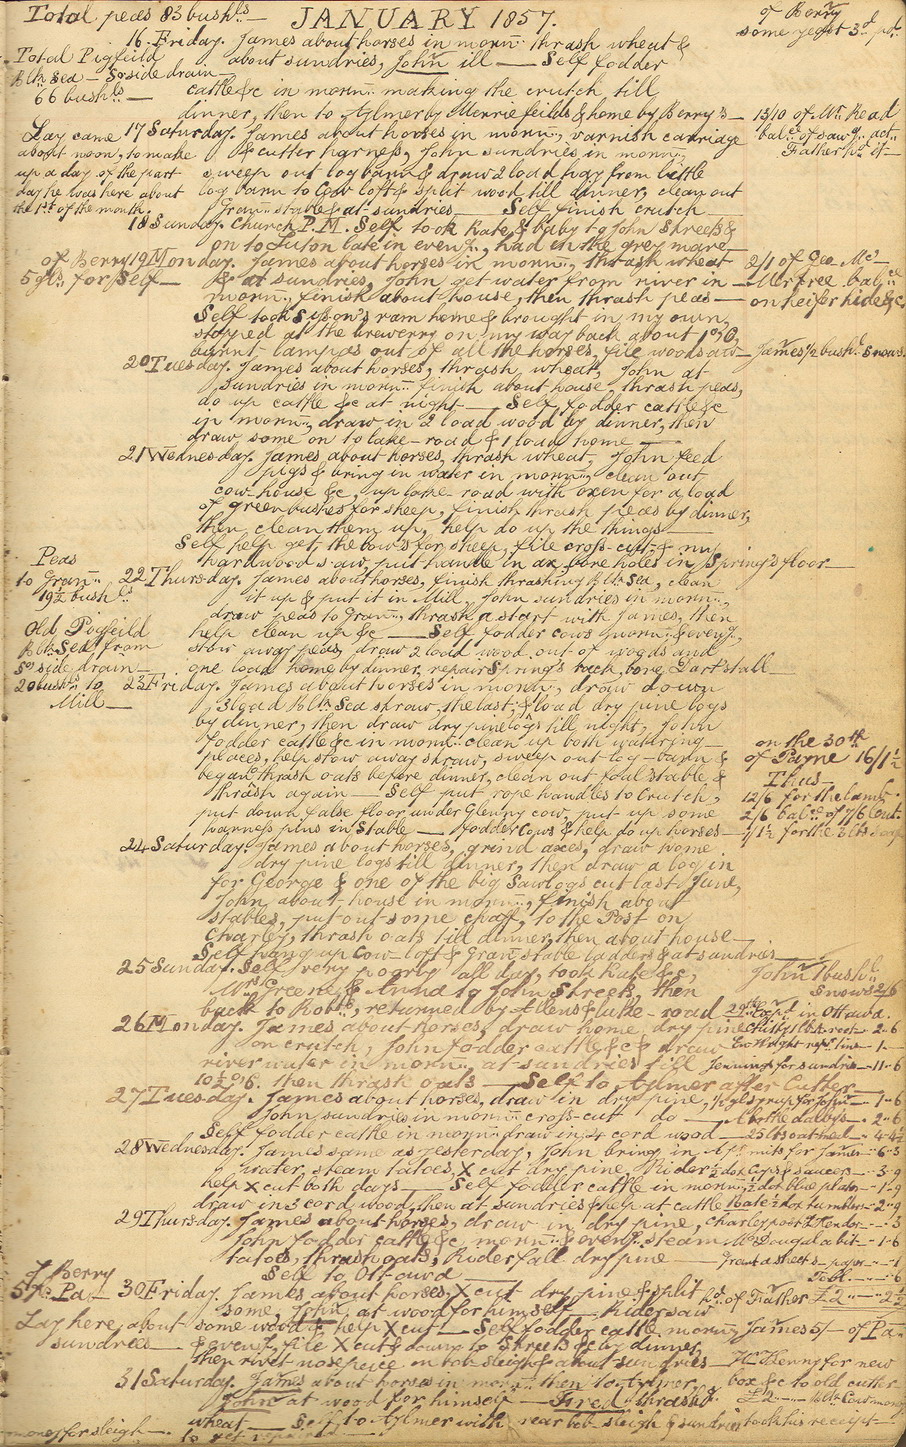 Total peas 83 bushls —
JANUARY 1857.
of Berry
some yeast 3d pd.
16 Friday. James about horses in morn: thrash wheat &
about sundries, John ill — Self fodder
cattle &c in morn: making the crutch till
dinner, then to Aylmer by Merriefeilds & home by Berry's —
Total Pigfeild
Blk Sea — So side drain —
66 bushls —
13/10 of Mr. Read
balce of saw g. act:
Father pd it —
17 Saturday. James about horses in morn:, varnish carridge
& cutter harness, John sundries in morn:,
sweep out log barn & draw 2 load hay from little
log barn to Cow loft & split wood till dinner, clean out
Gran: stable & at sundries — Self finish crutch —
Lay came
about noon, to make
up a day of the part
day he was here about
the 1st of the month.
18 Sunday. Church P.M. Self took Kate & baby to John Streets &
on to Luton late in eveng:, had in the grey mare —
19 Monday. James about horses in morn:, thrash wheat
& at sundries, John get water from river in
morn:, finish about house, then thrash peas —
Self took Sipson's ram home & brought in my own,
stopped at the brewerry on my way back about
burnt lampas out of all the horses, file woodsaw —
of Berry
5 gls. for Self —
2/1 of Geo. Mc
Murfree balce
on heifer hide &c.
James 1/2 bushl. snows.
20 Tuesday. James about horses, thrash wheat, John at
sundries in morn: finish about house, thrash peas,
do up cattle &c at night — Self fodder cattle &c
in morn:, draw in 2 load wood by dinner, then
draw some on to lake-road & 1 load home —
21 Wednesday. James about horses, thrash wheat, John feed
pigs & bring in water in morn:, clean out
cow-house &c, up lake-road with oxen for a load
of green bushes for sheep, finish thrash peas by dinner,
then clean them up, help do up the things —
Self help get the bows for sheep, file cross-cut & my
hardwood saw, put handle in ax, bore holes in Spring's floor —
Peas
to Gran:
19 1/2 bushls
22 Thursday. James about horses, finish thrashing Blk Sea, clean
it up & put it in Mill, John sundries in morn:,
draw peas to Gran:, thrash a start with James, then
help clean up &c — Self fodder cows morn: & eveng:,
stow away peas, draw 2 load wood out of woods and
one load home by dinner, repair Spring's rack, bore Dart's stall —
Old Pigfeild
Blk Sea from
So side drain —
20 bushls to
Mill —
23 Friday. James about horses in morn:, draw down
3 load Blk Sea straw, the last, & load dry pine logs
by dinner, then draw dry pine logs till night, John
fodder cattle &c in morn: clean up both watering-
places, help stow away straw, sweep out log-barn &
began thrash oats before dinner, clean out foul stable &
thrash again — Self put rope handles to crutch,
put down false floor under Glenny cow, put up some
harness pins in Stable — fodder cows & help do up horses —
on the 30th
of Payne 16/1 1/2
Thus —
12/6 for the lamb.
2/6 balce of 7/6 lent.
24 Saturday. James about horses, grind axes, draw home
dry pine logs till dinner, then draw a log in
for George & one of the big sawlogs cut last June,
John about house in morn:, finish about
stables, put out some chaff, to the Post on
Charley, thrash oats till dinner, then about house —
Self hang up Cow-loft & Gran: stable ladders & at sundries —
25 Sunday. Self very poorly all day, took Kate &c,
Mrs. Greene, & Anna to John Streets, then
back to Robts, returned by Allens & lake-road
John 1 bushl.
snows 2/6
26 Monday. James about horses, draw home dry pine
on crutch, John fodder cattle &c & draw
river water in morn:, at sundries till
10 1/2 o'c. then thrash oats — Self to Aylmer after Cutter —
Jennings for sundries — 11 - 6
27 Tuesday. James about horses, draw in dry pine,
John sundries in morn: cross-cut do —
Self fodder cattle in morn: draw in 4 cord wood —
25 lbs oatmeal — 4 - 4 1/2
28 Wednesday. James same as yesterday, John bring in
water, steam tatoes, X cut dry pine, Rider
help X cut both days — Self fodder cattle in morn:,
draw in 3 cord wood, then at sundries & help at cattle
mits for James — 6 - 3
1/2 doz Cups & saucers — 3 - 9
1/2 dot blue plates — 1 - 9
29 Thursday. James about horses, draw in dry pine,
John fodder cattle &c, morn: & eveng: steam
tatoes, thrash oats, Rider fall dry pine —
Self to Ottawa
McDougal a bit — 1 - 6
J Berry
30 Friday. James about horses, X cut dry pine & split
some, John at wood for himself — Rider saw
some wood & help X cut — Self fodder cattle morn:
& eveng:, file X cut & down to Streets &c by dinner,
then rivet nosepeice on bob sleigh & about sundries —
Lay here about
sundries —
pd. of Father £2 — 2 1/2
James 5/- of Pa —
31 Saturday. James about horses in morn: then to Aylmer,
John at wood for himself — Fred thrash
wheat — Self to Aylmer with near bob-sleigh & sundries
Hy Kenny for new
box &c to old cutter
took his receipt —
money for sleigh —